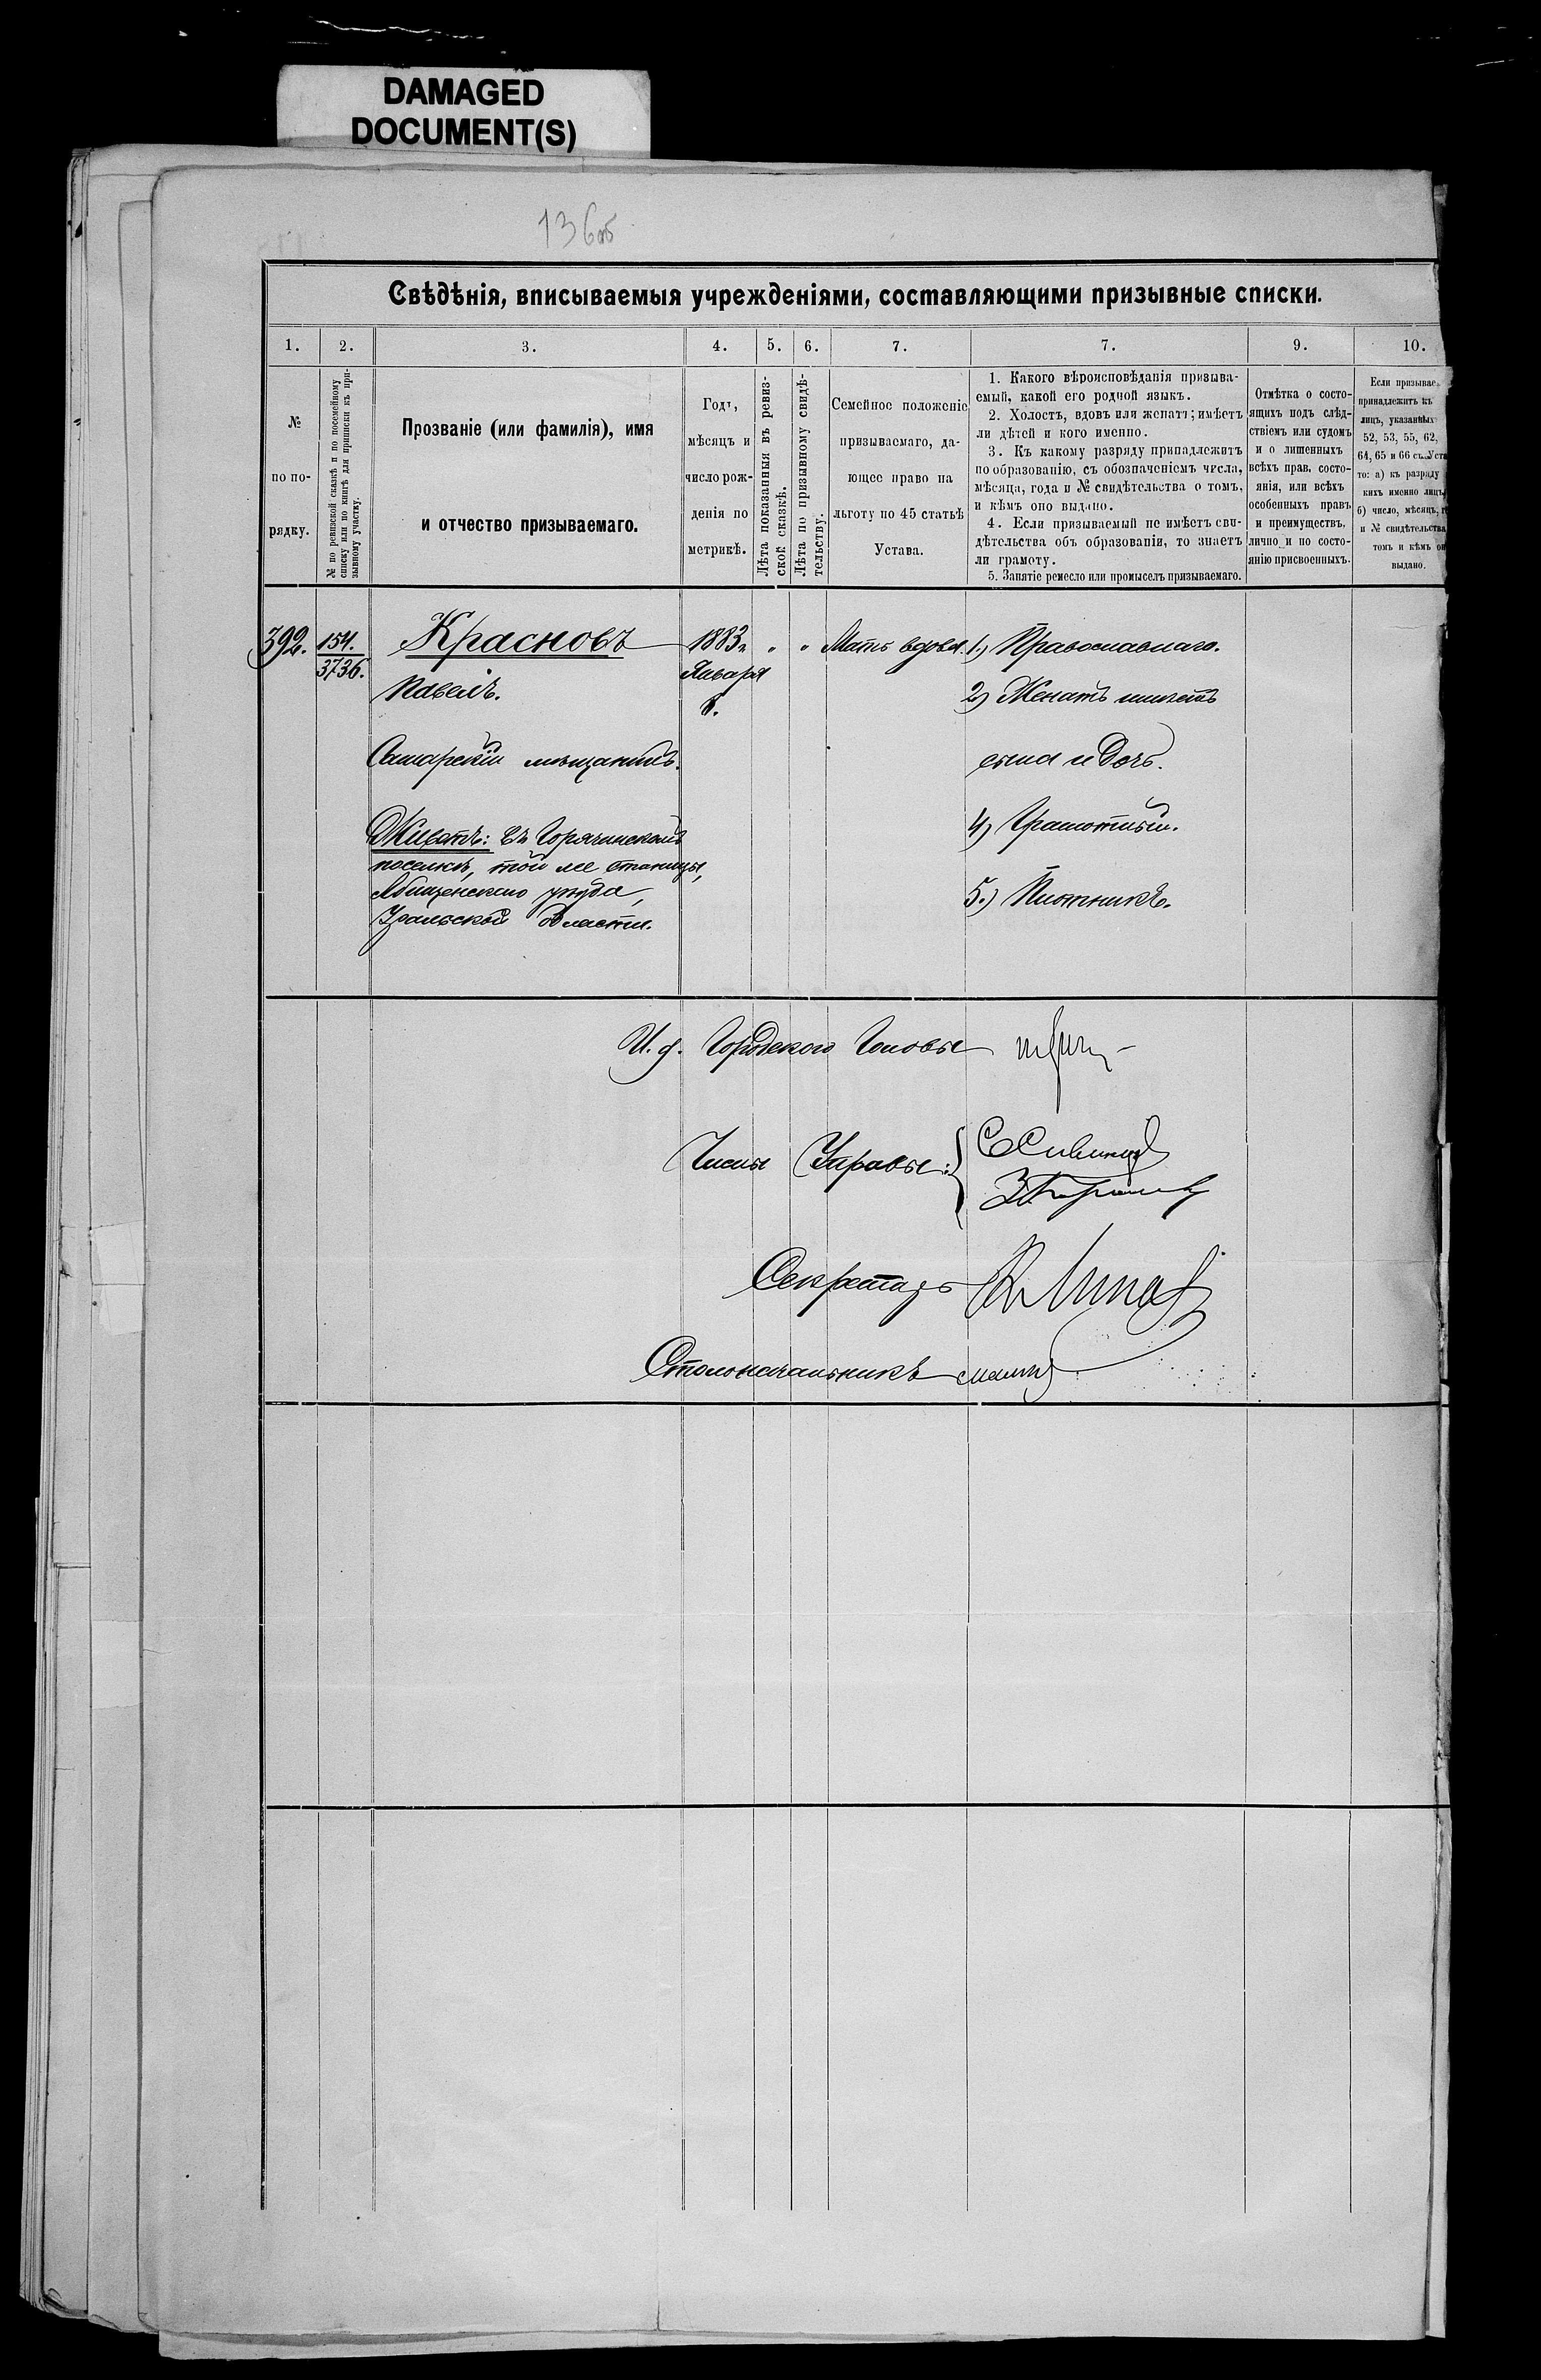 DAMAGED
DOCUMENT(S)
136об
Свѣдѣнія, вписываемыя учрежденіями, составляющими призывные списки.
1. 2. 3. 4. 5. 6. 7. 7. 9. 10.
№
по по-
рядку.
№ по ревизской сказкѣ и по посемейному
списку или по книгѣ для приписки къ при-
зывному участку.
Прозваніе (или фамилія), имя
и отчество призываемаго.
Годъ,
мѣсяцъ и
число рож-
денія по
метрикѣ.
Лѣта показанныя въ ревиз-
ской сказкѣ.
Лѣта по призывному свидѣ-
тельству.
Семейное положеніе
призываемаго, да-
ющее право на
льготу по 45 статьѣ
Устава.
1. Какого вѣроисповѣданія призыва-
емый, какой его родной языкъ.
2. Холостъ, вдовъ или женатъ; имѣетъ
ли дѣтей и кого именно.
3. Къ какому разряду принадлежитъ
по образованію, съ обозначеніемъ числа,
мѣсяца, года и № свидѣтельства о томъ,
и кѣмъ оно выдано.
4. Если призываемый не имѣетъ сви-
дѣтельства объ образованіи, то знаетъ
ли грамоту.
5. Занятіе ремесло или промыселъ призываемаго.
Отмѣтка о состо-
ящихъ подъ слѣд-
ствіемъ или судомъ
и о лишенныхъ
всѣхъ прав. состо-
янія, или всѣхъ
особенныхъ правъ
и преимуществъ,
лично и по состо-
янію присвоенныхъ.
Если призывае
принадлежитъ къ
лицъ, указанныхъ
52, 53, 55, 62,
64, 65 и 66 ст. Уста
то: а) къ разряду
кихъ именно лицъ
б) число, мѣсяцъ, г
и № свидѣтельства
томъ и кѣмъ он
выдано.
392. 154. Красновъ 1883 г. " " Мать вдова. 1.) Православнаго.
3736. Января
Павелъ. 6. 2) Женатъ имѣетъ
Самарскій мѣщанинъ. сына и дочь.
Живетъ: въ Горячинскомъ 4) Грамотный.
поселкѣ, той же станицы,
Лбищенскаго уѣзда, 5.) Плотникъ.
Уральской области.
И. д. Городского Головы
Члены Управы:
Секретарь
Столоначальникъ